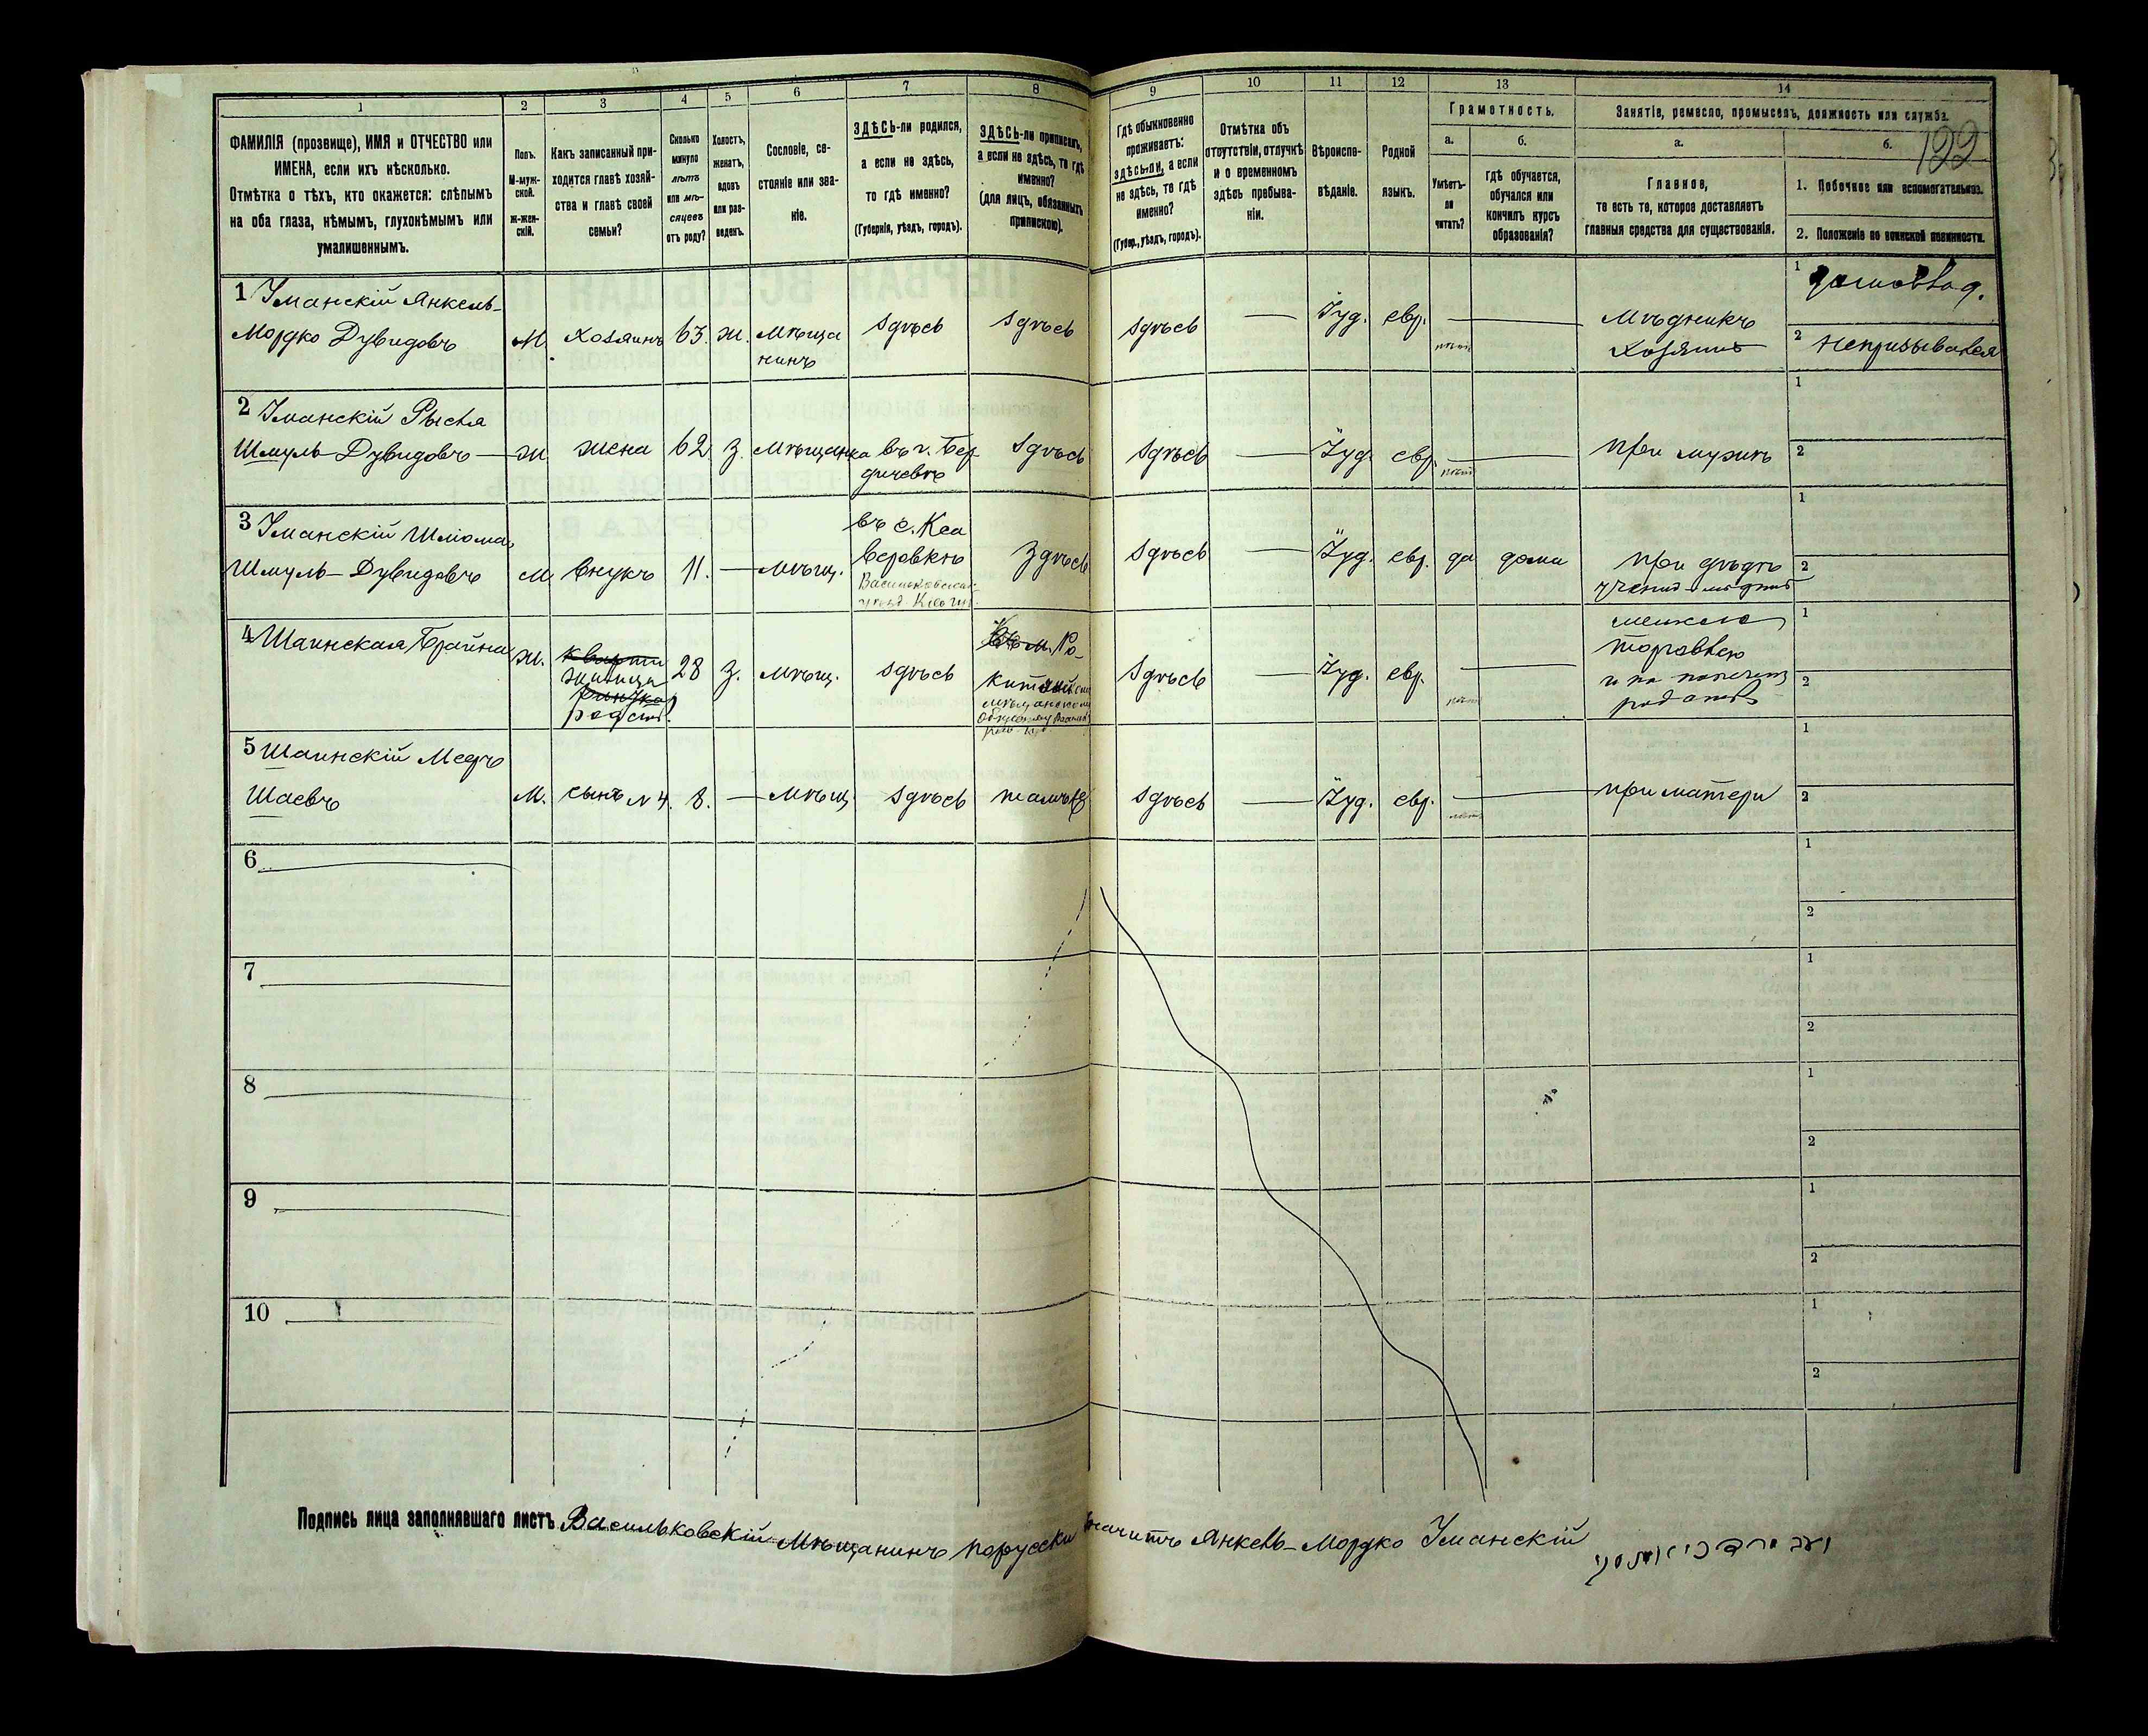 1
2
3
4
5
6
7
8
9
10
11
12
13
14
ФАМИЛІЯ (прозвище), ИМЯ и ОТЧЕСТВО или
ИМЕНА, если ихъ нѣсколько.
Отмѣтка о тѣхъ, кто окажется: слѣпымъ
на оба глаза, нѣмымъ, глухонѣмымъ или
умалишеннымъ.
Полъ.
М-муж-
ской.
Ж-жен-
скій.
Какъ записанный при-
ходится главѣ хозяй-
ства и главѣ своей
семьи?
Сколько
минуло
лѣтъ
или мѣ-
сяцевъ
отъ роду?
Холостъ,
женатъ,
вдовъ
или раз-
веденъ.
Сословіе, со-
стояніе или зва-
ніе.
ЗДѢСЬ-ли родился,
а если не здѣсь,
то гдѣ именно?
(Губернія, уѣздъ, городъ).
ЗДѢСЬ-ли приписанъ,
а если не здѣсь, то гдѣ
именно?
(для лицъ, обязанныхъ
припискою).
Гдѣ обыкновенно
проживаетъ:
здѣсь-ли, а если
не здѣсь, то гдѣ
именно?
(Губер., уѣздъ, городъ).
Отмѣтка объ
отсутствіи, отлучкѣ
и о временномъ
здѣсь пребыва-
ніи.
Вѣроиспо-
вѣданіе.
Родной
языкъ.
Грамотность.
а.
Умѣетъ-
ли
читать?
б.
гдѣ обучается,
обучался или
кончилъ курсъ
образованія?
Занятіе, ремесло, промыселъ, должность или служба.
а.
Главное,
то есть то, которое доставляетъ
главныя средства для существованія.
б.
122
1. Побочное или вспомогательное.
2. Положеніе по воинской повинности.
1 Уманскій Янкель-
Мордко Дувидовъ
М.
Хозяинъ
63.
ж.
Мѣща
нинъ
здѣсь
здѣсь
здѣсь
Іуд.
евр.
нѣтъ
Мѣдникъ
хозяинъ
1 домовлад.
2 Непризывался
2 Уманскій Рысля
Шмуль-Дувидовъ
ж
жена
62
з.
мѣщанка
въ г. Бер
дичевѣ
здѣсь
здѣсь
Іуд.
евр.
нѣтъ
при мужѣ
1
2
3 Уманскій Шліома
Шмуль-Дувидовъ
М
внукъ
11.
мѣщ.
въ с. Кса
веровкѣ
здѣсь
здѣсь
Іуд.
евр.
да
дома
при дѣдѣ
1
2
4 Шаинская Брайна
ж.
28
з.
мѣщ.
здѣсь
м. Ро-
здѣсь
Іуд.
евр.
нѣтъ
торговлею
1
2
5 Шаинскій Мееръ
Шаевъ
М.
сынъ N 4.
8.
мѣщ
здѣсь
здѣсь
Іуд.
евр.
при матери
1
2
6
1
2
7
1
2
8
1
2
9
1
2
10
1
2
Подпись лица заполнявшаго листъ Васильковскій мѣщанинъ порусски значитъ Янкель-Мордко Уманскій